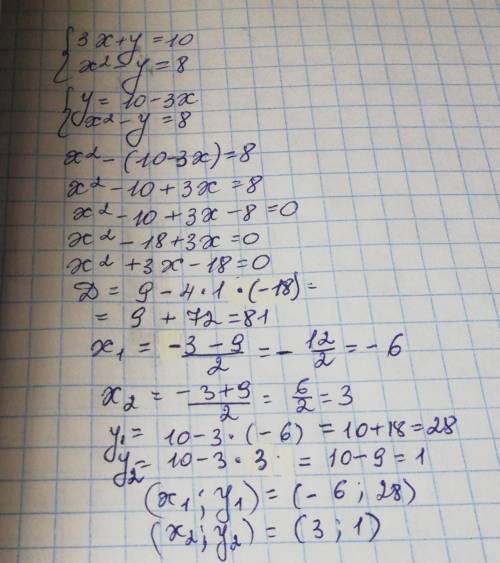 { 3x+y=10
x²-y=8
{ y=10-3x
x²-y=8
x²-(10-3x)=8
x²-10+3x=8
x²-10+3x-8=0
x²-18+3x=0
x²+3x-18=0
D=9-4·1·(-18)=
=9+72=81
x₁=(-3-9)/2=-12/2=-6
x₂=(-3+9)/2=6/2=3
y₁=10-3·(-6)=10+18=28
y₂=10-3·3=10-9=1
(x₁;y₁)=(-6;28)
(x₂;y₂)=(3;1)